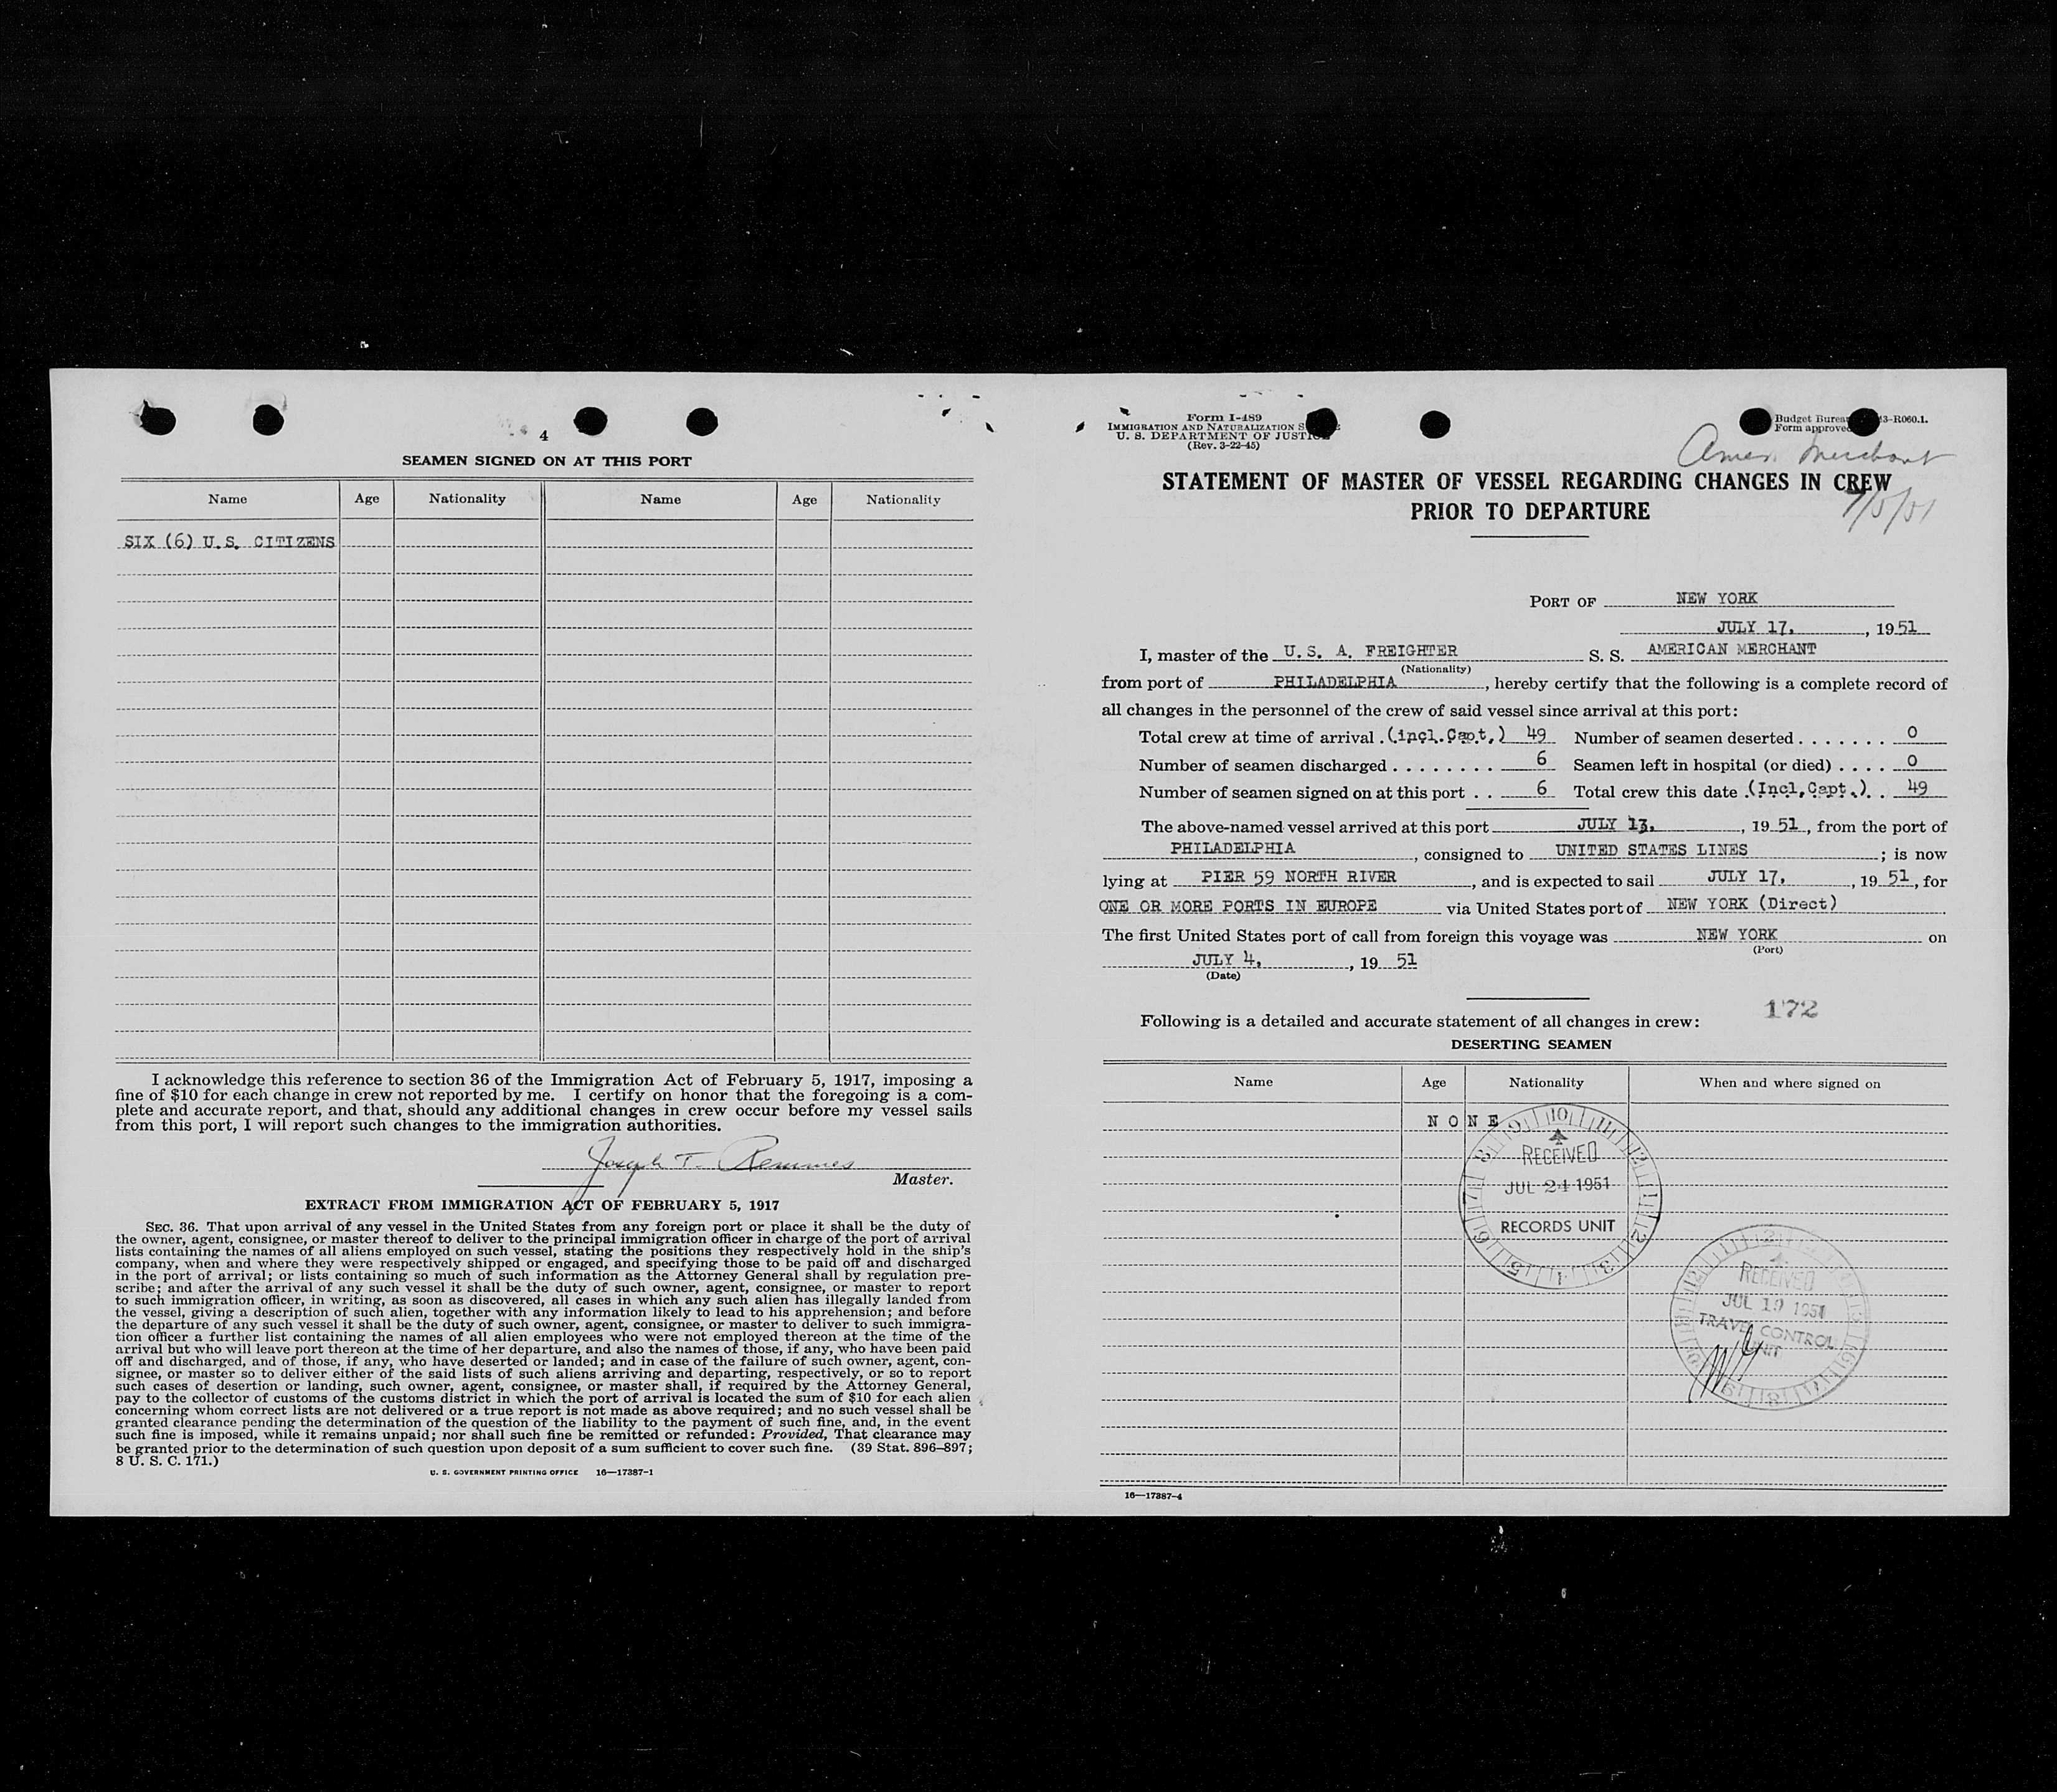 4
SEAMEN SIGNED ON AT THIS PORT
Name Age Nationality Name Age Nationality
SIX (6) U.S. CITIZENS
I acknowledge this reference to section 36 of the Immigration Act of February 5, 1917, imposing a
fine of $10 for each change in crew not reported by me. I certify on honor that the foregoing is a com-
plete and accurate report, and that, should any additional changes in crew occur before my vessel sails
from this port, I will report such changes to the immigration authorities.
Joseph T. Remmes
Master.
EXTRACT FROM IMMIGRATION ACT OF FEBRUARY 5, 1917
SEC. 36. That upon arrival of any vessel in the United States from any foreign port or place it shall be the duty of
the owner, agent, consignee, or master thereof to deliver to the principal immigration officer in charge of the port of arrival
lists containing the names of all aliens employed on such vessel, stating the positions they respectively hold in the ship's
company, when and where they were respectively shipped or engaged, and specifying those to be paid off and discharged
in the port of arrival; or lists containing so much of such information as the Attorney General shall by regulation pre-
scribe; and after the arrival of any such vessel it shall be the duty of such owner, agent, consignee, or master to report
to such immigration officer, in writing, as soon as discovered, all cases in which any such alien has illegally landed from
the vessel, giving a description of such alien, together with any information likely to lead to his apprehension; and before
the departure of any such vessel it shall be the duty of such owner, agent, consignee, or master to deliver to such immigra-
tion officer a further list containing the names of all alien employees who were not employed thereon at the time of the
arrival but who will leave port thereon at the time of her departure, and also the names of those, if any, who have been paid
off and discharged, and of those, if any, who have deserted or landed; and in case of the failure of such owner, agent, con-
signee, or master so to deliver either of the said lists of such aliens arriving and departing, respectively, or so to report
such cases of desertion or landing, such owner, agent, consignee, or master shall, if required by the Attorney General,
pay to the collector of customs of the customs district in which the port of arrival is located the sum of $10 for each alien
concerning whom correct lists are not delivered or a true report is not made as above required; and no such vessel shall be
granted clearance pending the determination of the question of the liability to the payment of such fine, and, in the event
such fine is imposed, while it remains unpaid; nor shall such fine be remitted or refunded: Provided, That clearance may
be granted prior to the determination of such question upon deposit of a sum sufficient to cover such fine. (39 Stat. 896–897;
8 U. S. C. 171.)
U. S. GOVERNMENT PRINTING OFFICE 16—17387-1
Form I-489
IMMIGRATION AND NATURALIZATION
U. S. DEPARTMENT OF JUSTICE
(Rev. 3-22-45)
Budget Bureau 43-R060.1.
Form approved
Amer. Merchant
7/5/51
STATEMENT OF MASTER OF VESSEL REGARDING CHANGES IN CREW
PRIOR TO DEPARTURE
PORT OF NEW YORK
JULY 17, , 1951
I, master of the U. S. A. FREIGHTER S. S. AMERICAN MERCHANT
(Nationality)
from port of PHILADELPHIA , hereby certify that the following is a complete record of
all changes in the personnel of the crew of said vessel since arrival at this port:
Total crew at time of arrival (incl.Capt.) 49 Number of seamen deserted . . . . . . . 0
Number of seamen discharged . . . . . . . . 6 Seamen left in hospital (or died) . . . . 0
Number of seamen signed on at this port . . 6 Total crew this date (Incl,Capt.) . . 49
The above-named vessel arrived at this port JULY 13, , 19 51 , from the port of
PHILADELPHIA , consigned to UNITED STATES LINES ; is now
lying at PIER 59 NORTH RIVER , and is expected to sail JULY 17, , 19 51 , for
ONE OR MORE PORTS IN EUROPE via United States port of NEW YORK (Direct)
The first United States port of call from foreign this voyage was NEW YORK on
(Port)
JULY 4, , 19 51
(Date)
172
Following is a detailed and accurate statement of all changes in crew:
DESERTING SEAMEN
Name Age Nationality When and where signed on
N O N E
RECEIVED
JUL 24 1951
RECORDS UNIT
RECEIVED
JUL 19 1951
TRAVEL CONTROL
UNIT
16—17387-4